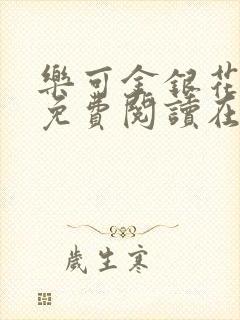 樂可金銀花
免費閱讀在
歲生寒